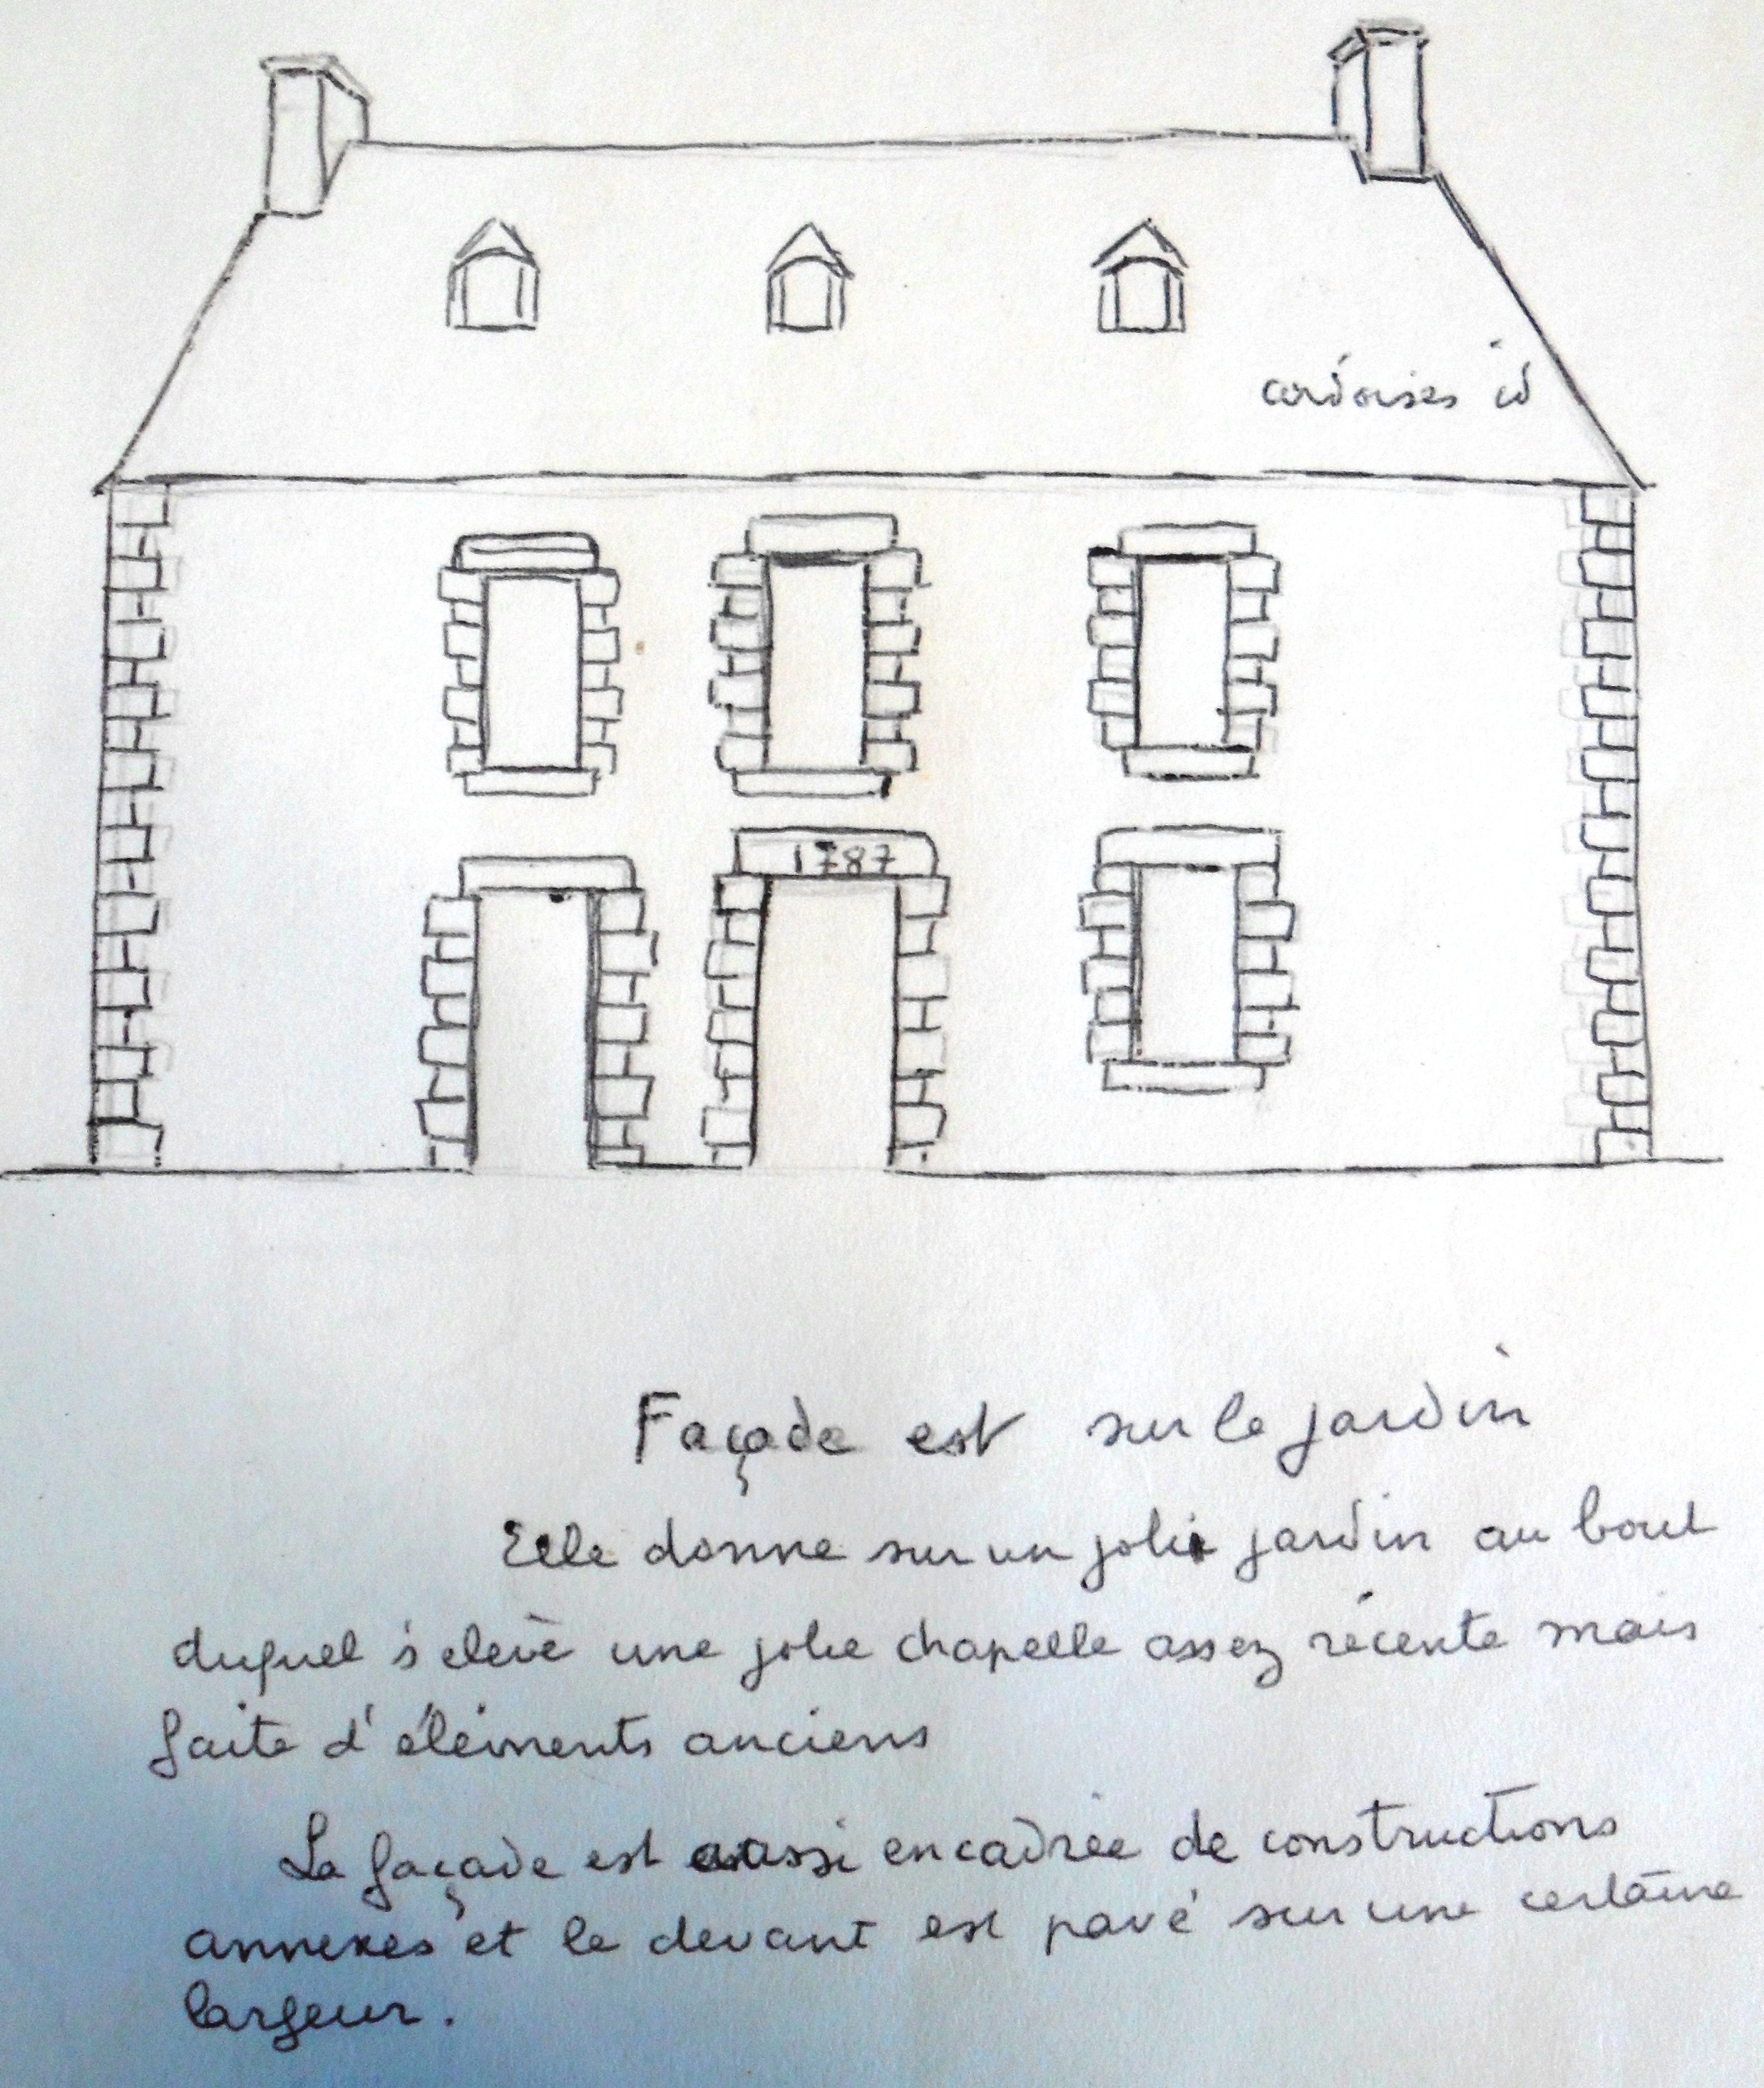 ardoises id
1787
Façade est sur le jardin
Elle donne sur un joli jardin au bout
duquel s'elevè une jolie chapelle assez récente mais
faite d'éléments anciens
La façade est aussi encadrée de constructions
annexes et le devant est pavé sur une certaine
largeur.